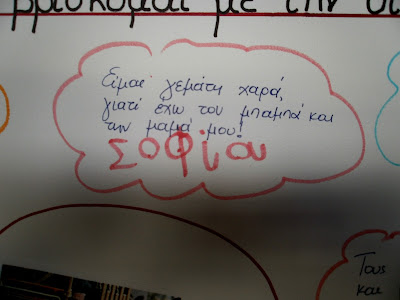 βρίσκομαι με την
Είμαι γεμάτη χαρά,
γιατί έχω τον μπαμπά και
την μαμά μου!
Σοφία
Τους
και